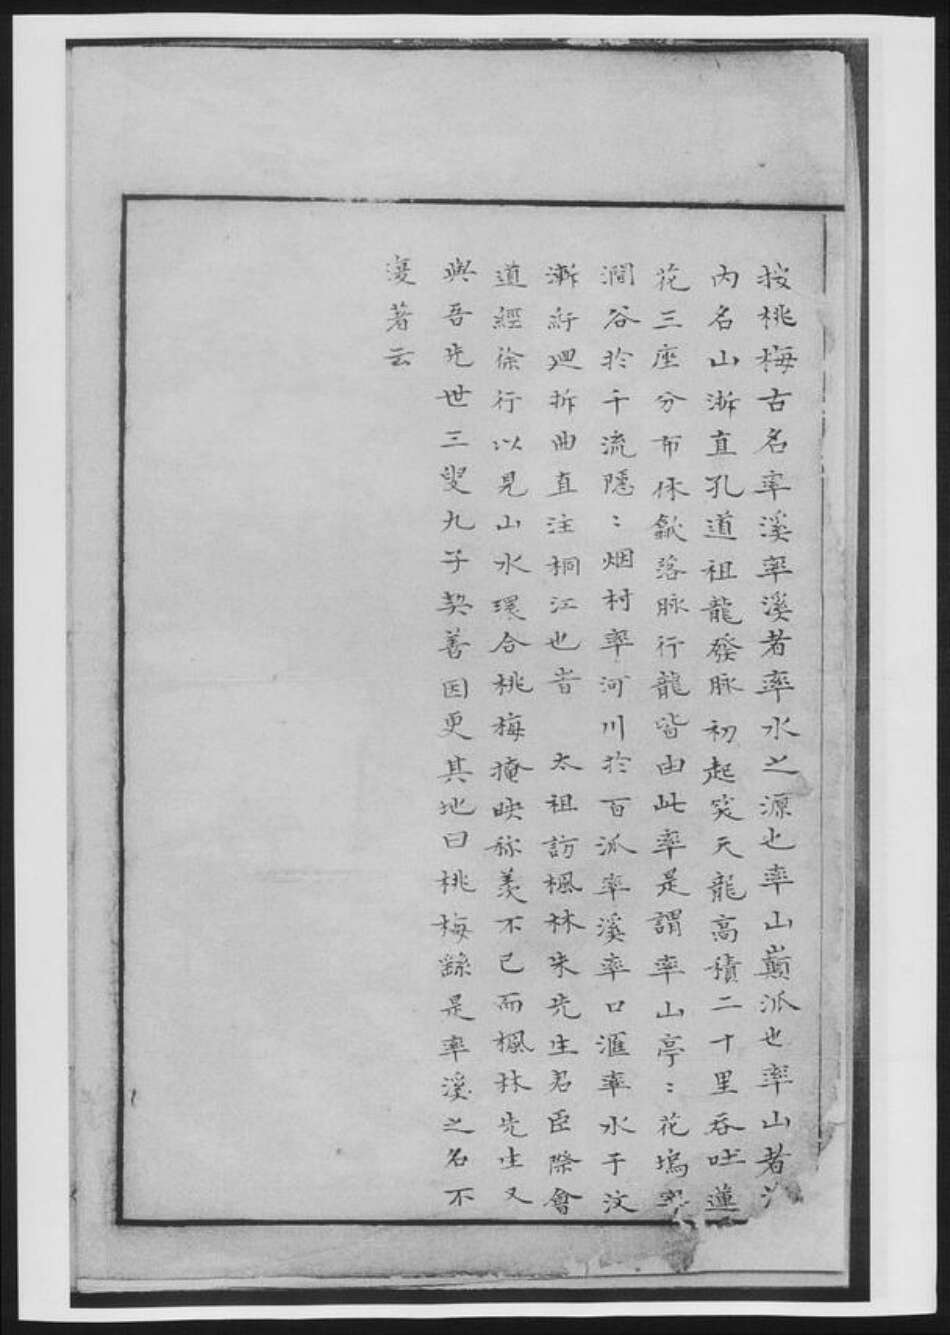 按桃梅古名率溪率溪者率水之源也率山巔派也率山者
内名山浙直孔道祖龍發脉初起冥天龍高積二十里吞吐蓮
花三座分布休歙落脉行龍皆由此率是謂率山亭〻花塢
澗谷於千流隱〻烟村率河川於百派率溪率口滙率水于汶
漸紆廻折曲直注桐江也昔 太祖訪楓林朱先生君臣際會
道經徐行以見山水環合桃梅掩映称羡不已而楓林先生又
與吾先世三叟九子契善因更其地曰桃梅繇是率溪之名不
復著云